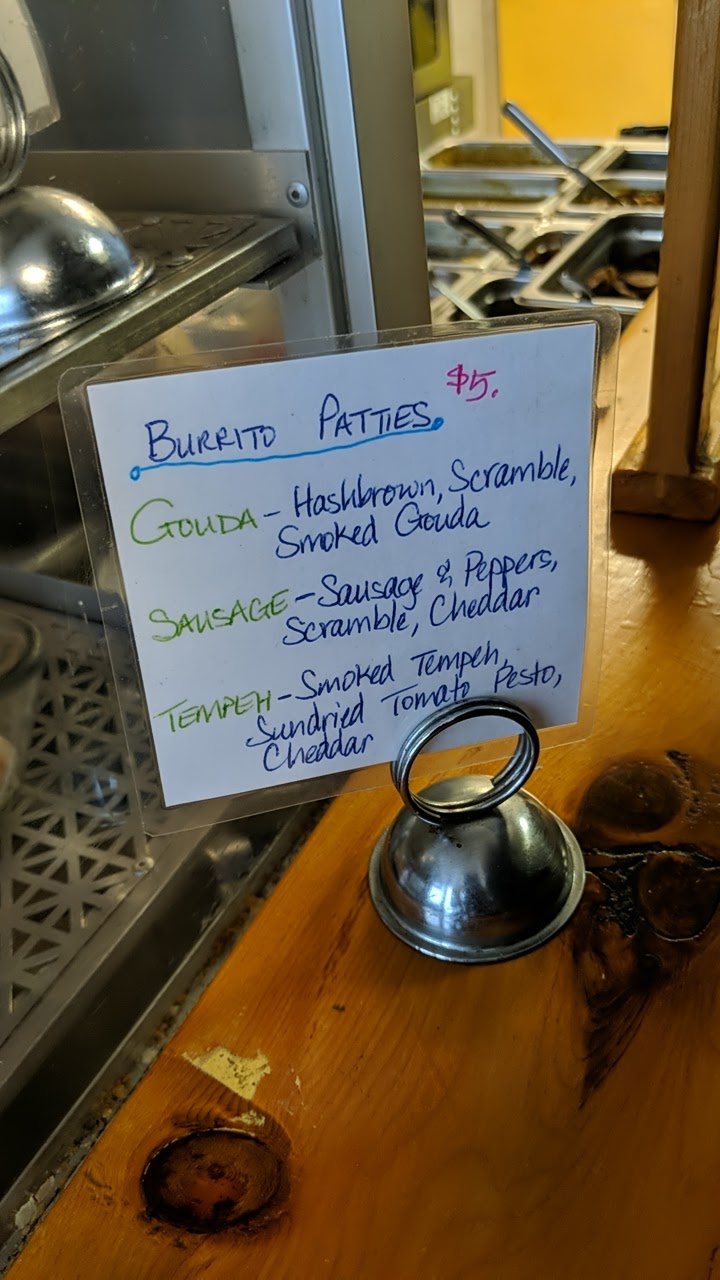 BURRITO PATTIES. $5.
GOUDA - Hashbrown, Scramble,
Smoked Gouda
SAUSAGE - Sausage & Peppers,
Scramble, Cheddar
TEMPEH - Smoked Tempeh,
Sundried Tomato Pesto,
Cheddar